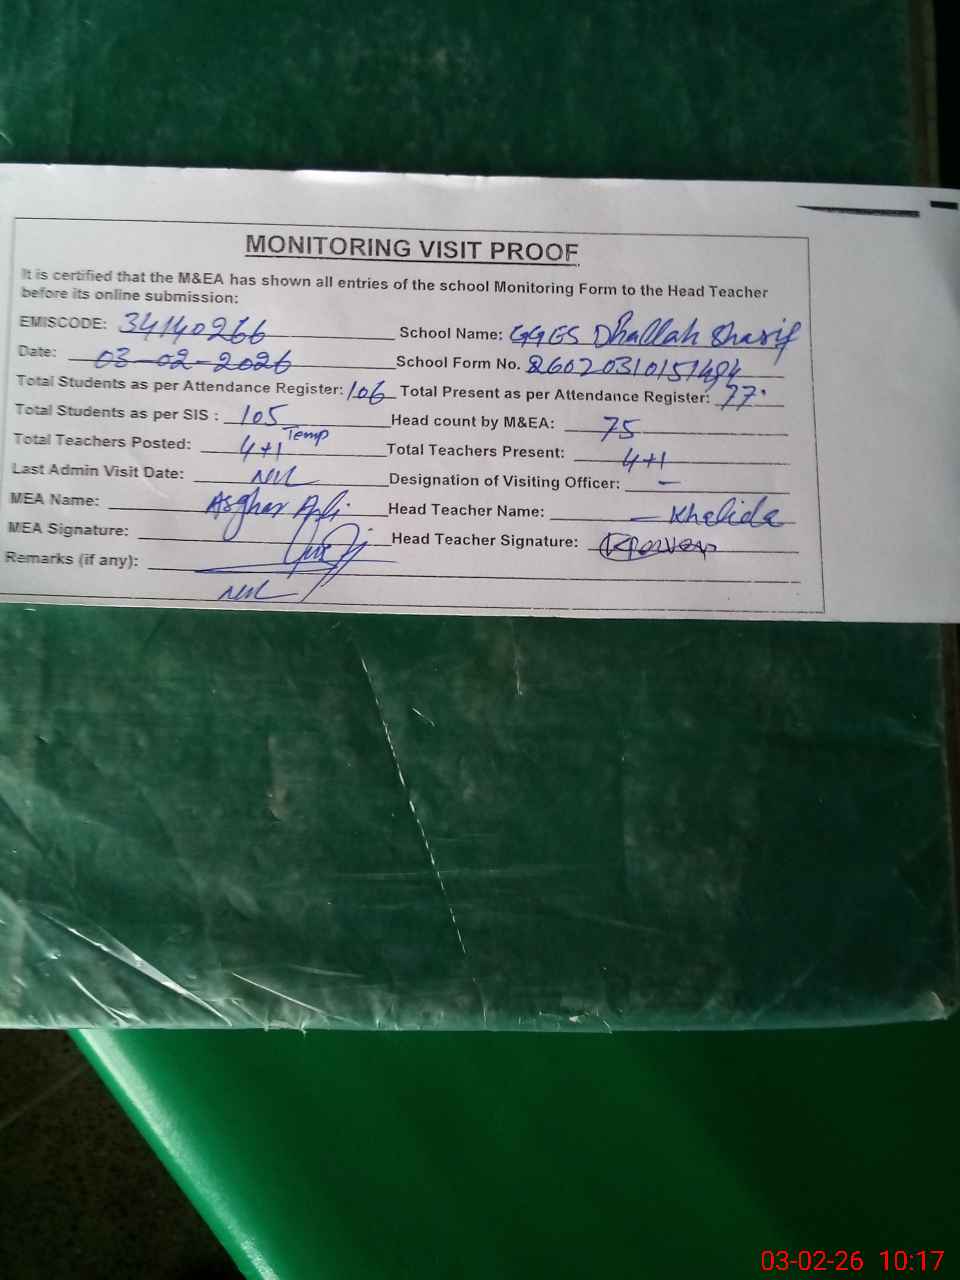 MONITORING VISIT PROOF
It is certified that the M&EA has shown all entries of the school Monitoring Form to the Head Teacher
before its online submission:
EMISCODE: 34140266 School Name: GGES Dhallah Sharif
Date: 03-02-2026 School Form No. 26020310151494
Total Students as per Attendance Register: 106 Total Present as per Attendance Register: 77
Total Students as per SIS : 105 Head count by M&EA: 75
Total Teachers Posted: 4+1 Temp Total Teachers Present: 4+1
Last Admin Visit Date: NIL Designation of Visiting Officer: -
MEA Name: Asghar Ali Head Teacher Name: Khalida
MEA Signature: Head Teacher Signature:
Remarks (if any):
NIL
03-02-26 10:17